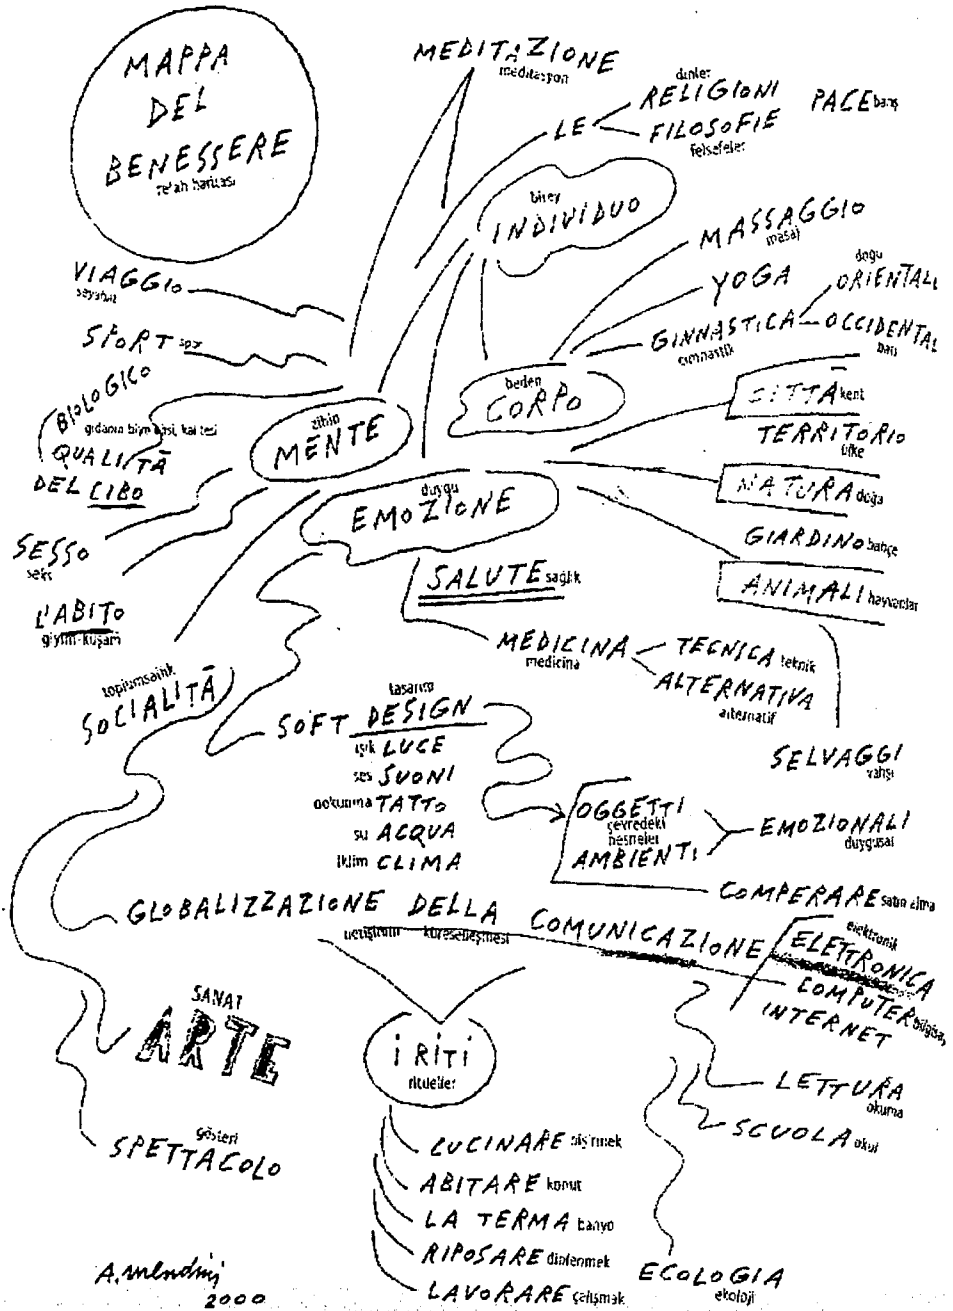 MAPPA
DEL
BENESSERE
refah haritası
MEDITAZIONE
meditasyon
LE
dinler
RELIGIONI
FILOSOFIE
felsefeler
PACE barış
birey
INDIVIDUO
MASSAGGIO
masaj
YOGA
GINNASTICA
cimnastik
doğu
ORIENTALI
OCCIDENTAL
batı
VIAGGIO
seyahat
SPORT spor
BIOLOGICO
QUALITÀ
DEL CIBO
zihin
MENTE
beden
CORPO
duygu
EMOZIONE
CITTÀ kent
TERRITORIO
ülke
NATURA doğa
GIARDINO bahçe
ANIMALI hayvanlar
SELVAGGI
vahşi
SESSO
seks
L'ABITO
giyim-kuşam
SALUTE sağlık
MEDICINA
medicina
TECNICA teknik
ALTERNATIVA
alternatif
toplumsallık
SOCIALITÀ
tasarım
SOFT DESIGN
ışık LUCE
ses SUONI
dokunma TATTO
su ACQUA
iklim CLIMA
OGGETTI
çevredeki
nesneler
AMBIENTI
EMOZIONALI
duygusal
COMPERARE satın alma
GLOBALIZZAZIONE DELLA COMUNICAZIONE
iletişimin küreselleşmesi
elektronik
ELETTRONICA
COMPUTER
INTERNET
LETTURA
okuma
SCUOLA okul
ECOLOGIA
ekoloji
SANAT
ARTE
gösteri
SPETTACOLO
I RITI
ritüeller
CUCINARE pişirmek
ABITARE konut
LA TERMA banyo
RIPOSARE dinlenmek
LAVORARE çalışmak
A. Mendini
2000